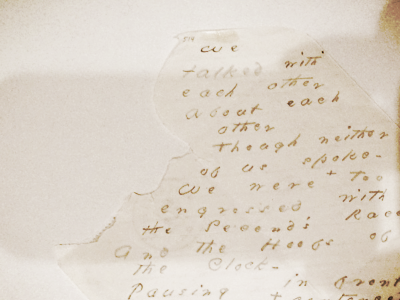 We
talked with
each other
about each
other
though neither
of us spoke -
We were too
engressed with
the Second's Race
and the Hoofs of
the Clock -
Pausing in front